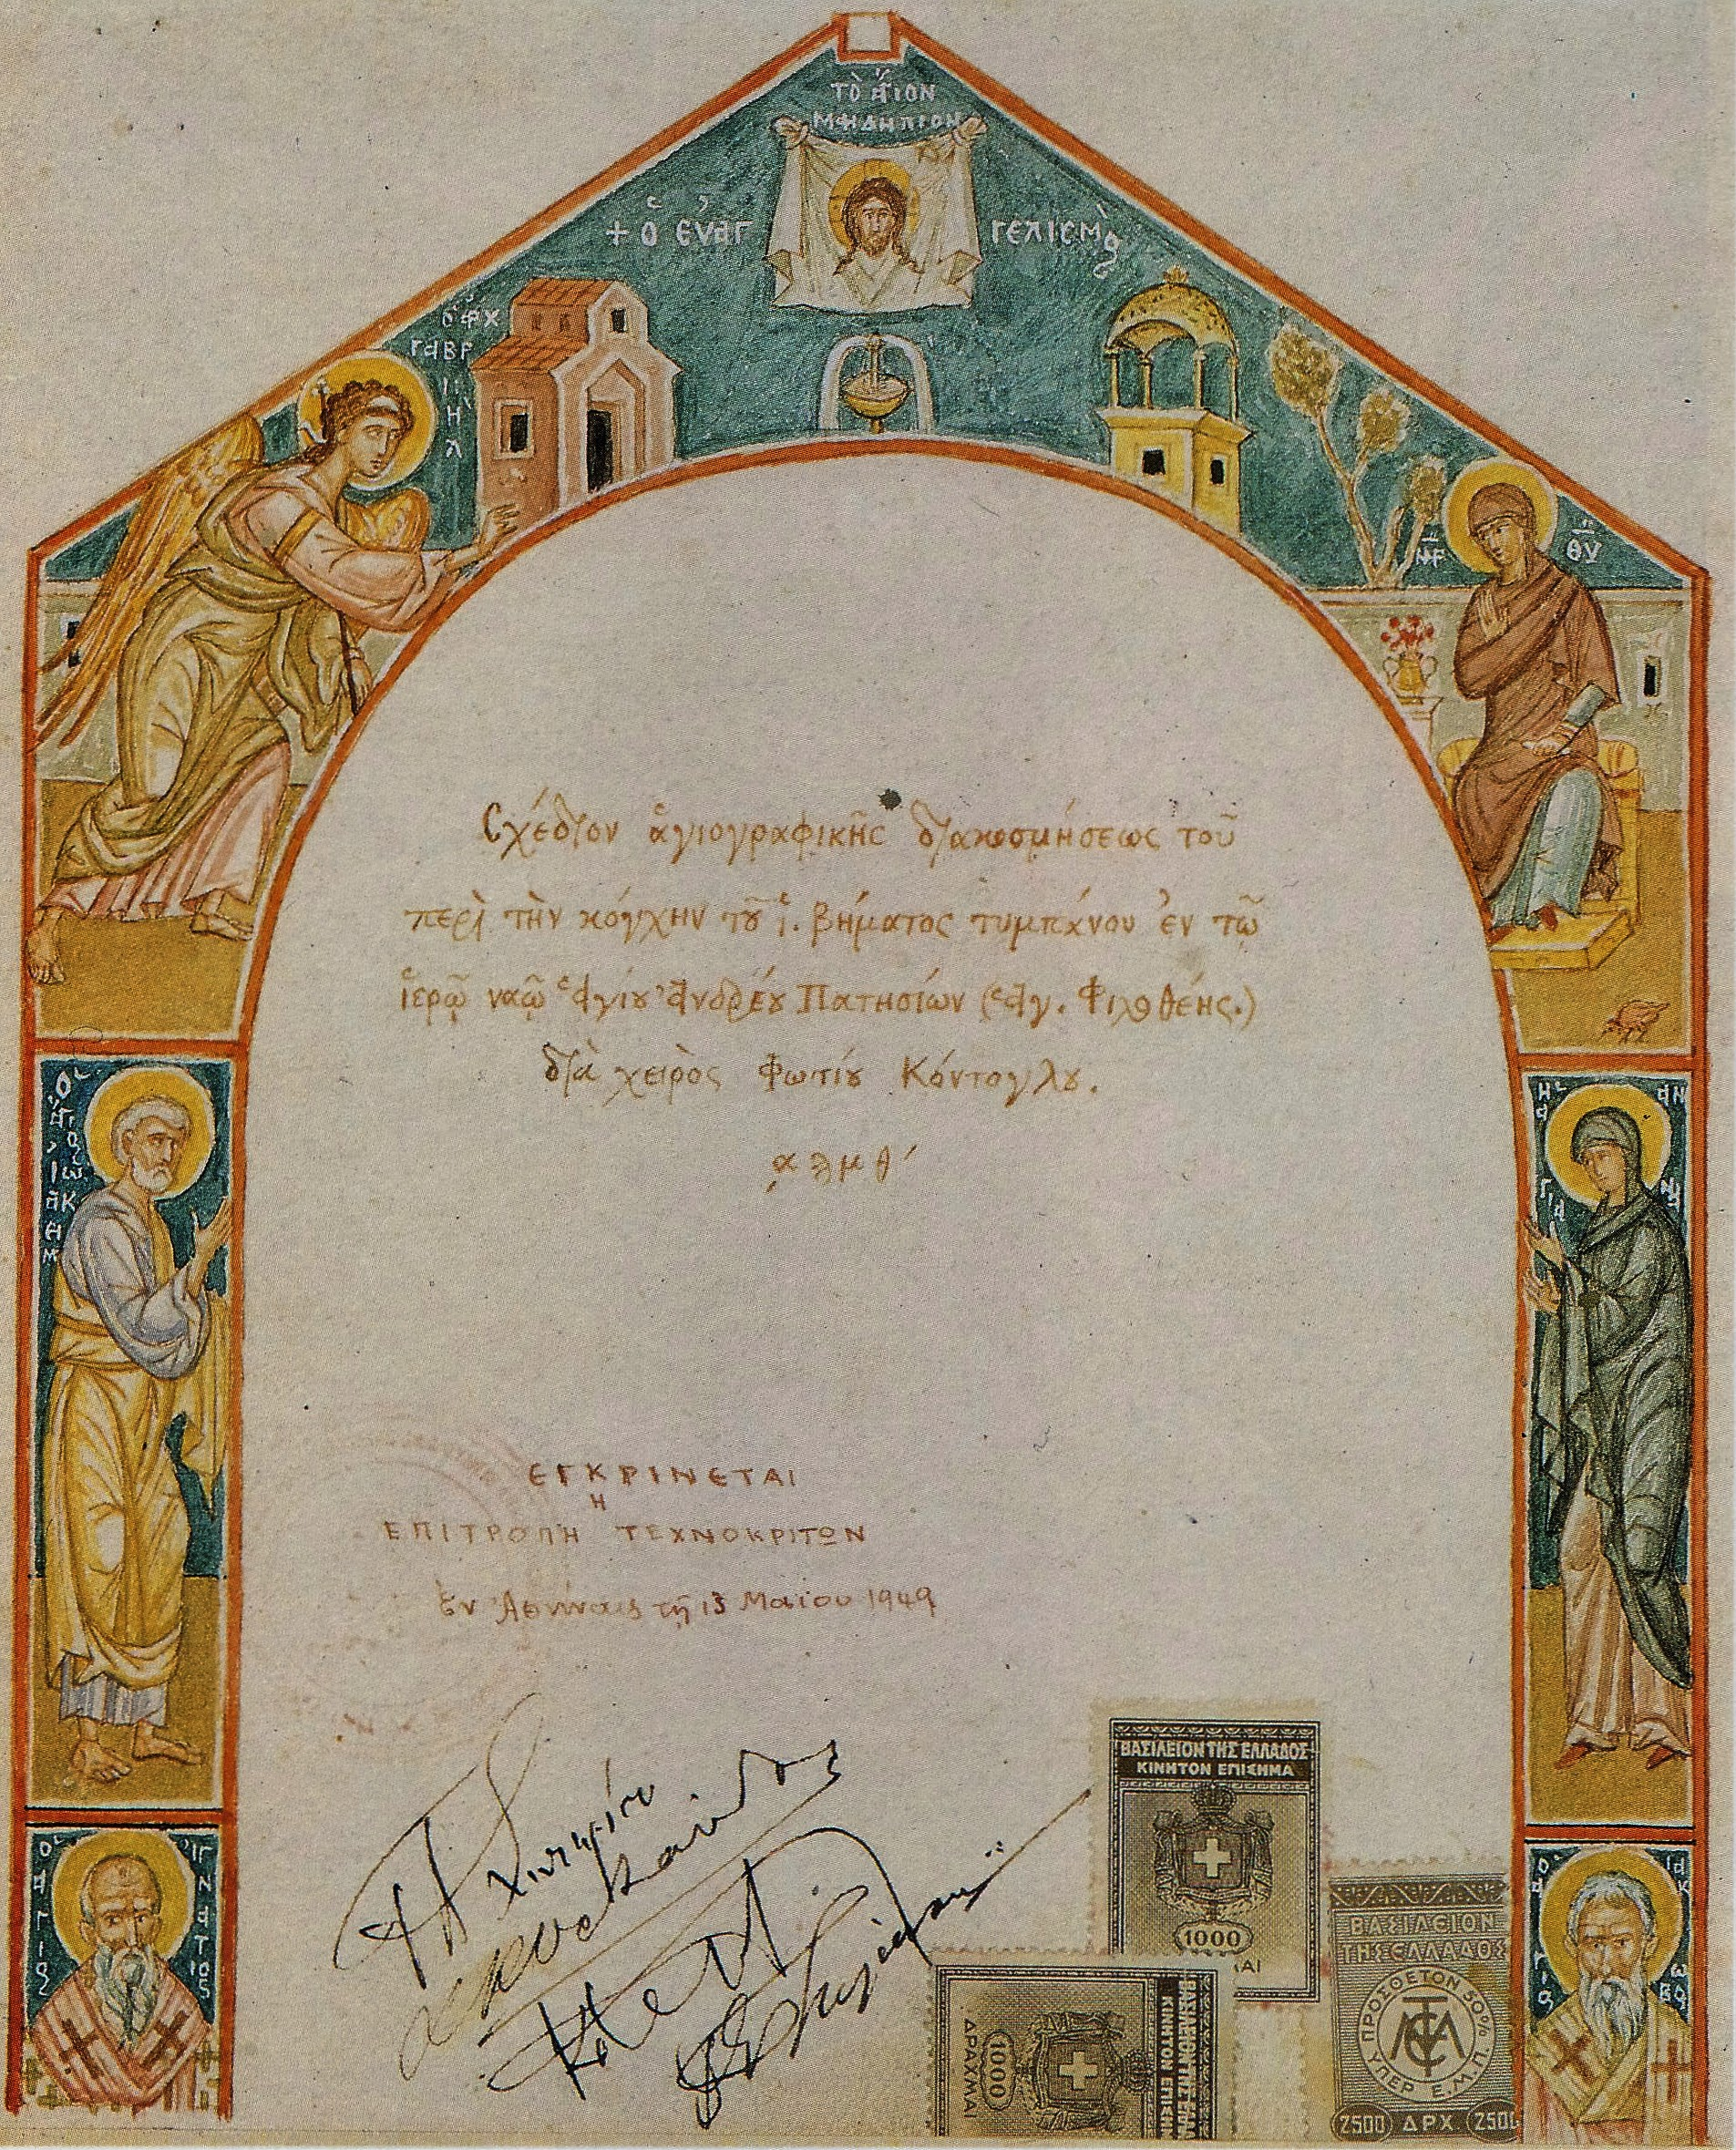 ΤΟ ἍΓΙΟΝ
ΜΑΝΔΗΛΙΟΝ
+ Ὁ ΕΥΑΓ ΓΕΛΙCΜΟC
Ὁ ΑΡΧ
ΓΑΒΡ
Ι
Η
Λ
ΜΡ ΘΥ
Cχέδιον ἁγιογραφικῆς διακοσμήσεως τοῦ
περὶ τὴν κόγχην τοῦ ἱ. βήματος τυμπάνου ἐν τῷ
ἱερῷ ναῷ Ἁγίου Ἀνδρέου Πατησίων (Ἁγ. Φιλοθέης.)
διὰ χειρὸς Φωτίου Κόντογλου.
͵αϡμθ´
Ὁ
ΙΩ
ΑΚ
ΕΙ
Μ
Η ΑΝ
ΑΓΙΑ ΝΑ
ΕΓΚΡΙΝΕΤΑΙ
Η
ΕΠΙΤΡΟΠΗ ΤΕΧΝΟΚΡΙΤΩΝ
Ἐν Ἀθήναις τῇ 13 Μαΐου 1949
Ο ΑΓΙΟC ΙΓΝΑΤΙΟC
Ο ΑΓΙΟC ΙΑΚΩΒΟC
ΒΑΣΙΛΕΙΟΝ ΤΗΣ ΕΛΛΑΔΟΣ
ΚΙΝΗΤΟΝ ΕΠΙΣΗΜΑ
1000
ΑΙ
ΒΑΣΙΛΕΙΟΝ ΤΗΣ ΕΛΛ
ΚΙΝΗΤΟΝ ΕΠΙΣΗ
1000
ΔΡΑΧΜΑΙ
ΒΑΣΙΛΕΙΟΝ
ΤΗΣ ΕΛΛΑΔΟΣ
ΠΡΟΣΘΕΤΟΝ 50%
ΥΠΕΡ Ε.Μ.Π.
2500 ΔΡΧ. 250